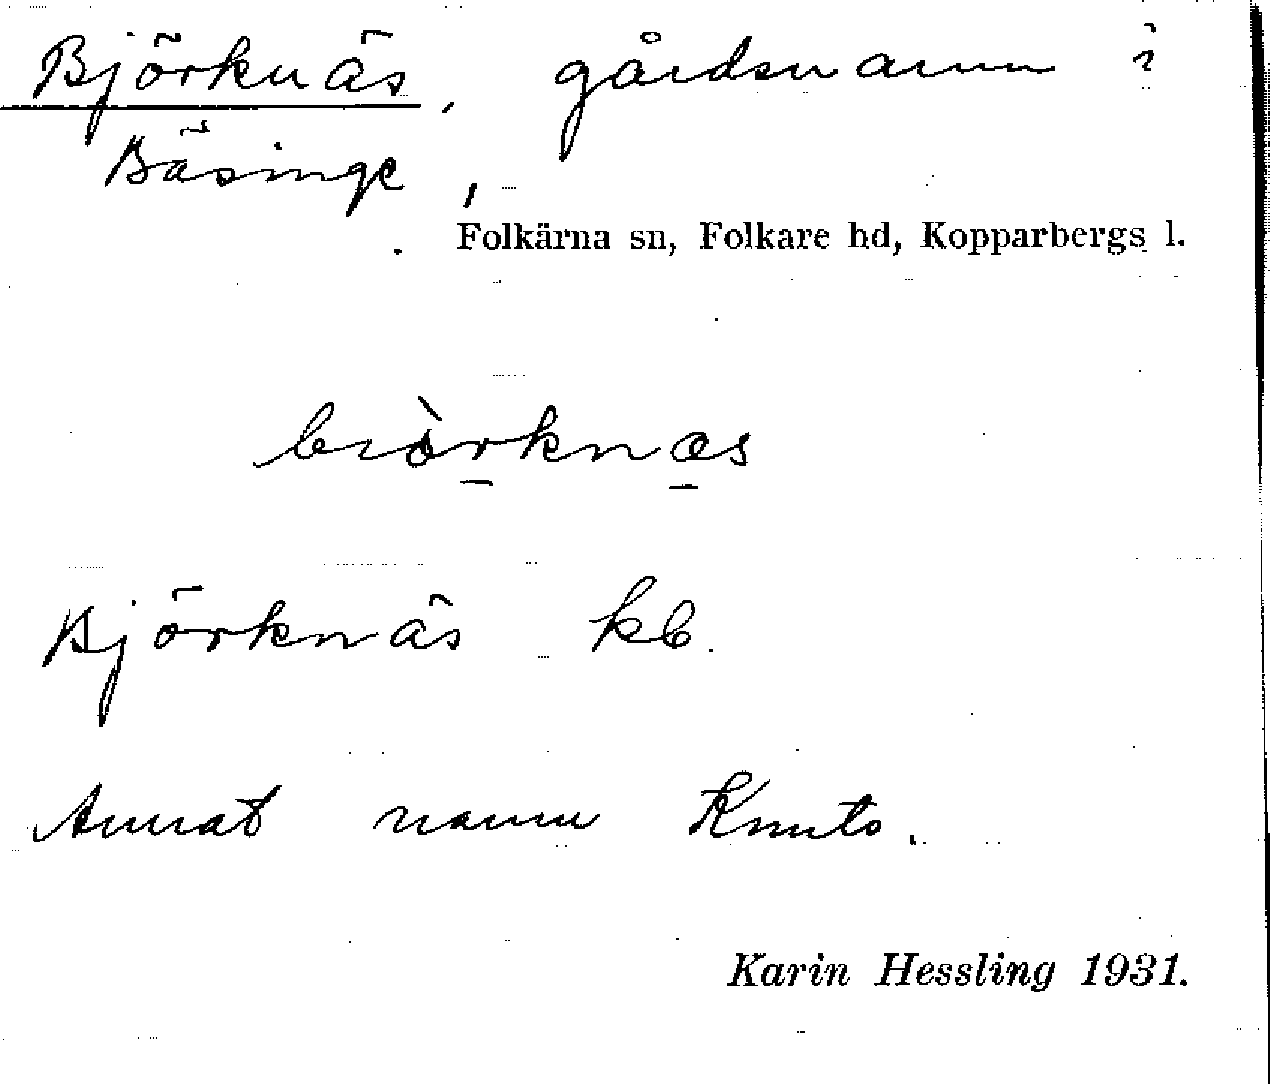 Björknäs, gårdsnamn i
Bäsinge,
Folkärna sn, Folkare hd, Kopparbergs l.
biòrknæs
Björknäs kb.
Annat namn Knuts.
Karin Hessling 1931.